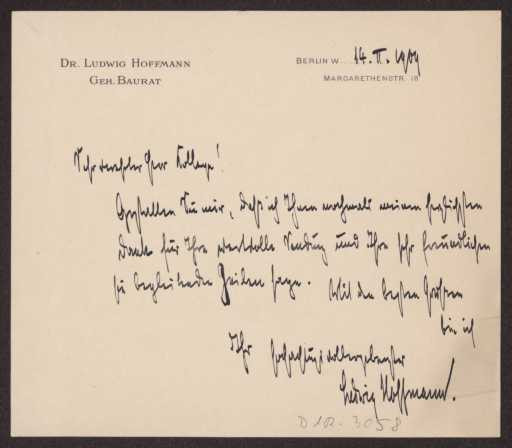 Dr. Ludwig Hoffmann
Geh. Baurat
Berlin W. 14. II. 1909
Margarethenstr. 18
Sehr verehrter Herr Kollege!
Gestatten Sie mir, daß ich Ihnen nochmals meinen herzlichsten
Dank für Ihre wertvolle Sendung und Ihre sehr freundlichen
sie begleitenden Zeilen sage. Mit den besten Grüßen
bin ich
Ihr hochachtungsvollergebenster
Ludwig Hoffmann.
D 1R. 3058